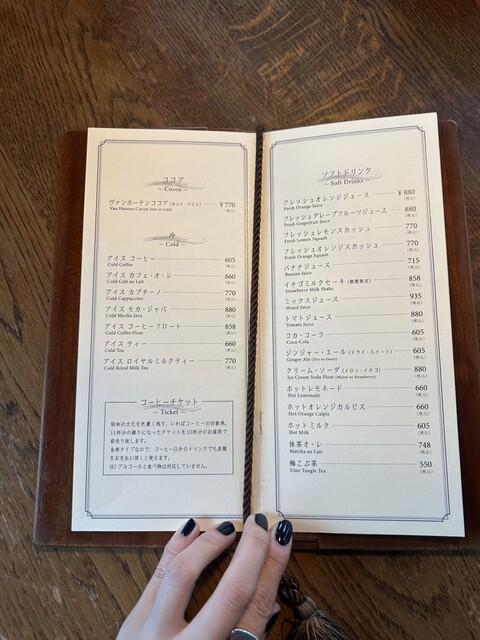 ココア
~ Cocoa ~
ヴァンホーテンココア(ホット・アイス) ¥770
Van Houten Cocoa (Hot or Cold) (税込)
冷
~ Cold ~
アイス コーヒー 605
Cold Coffee (税込)
アイス カフェ・オ・レ 660
Cold Café au Lait (税込)
アイス カプチーノ 770
Cold Cappuccino (税込)
アイス モカ・ジャバ 880
Cold Mocha Java (税込)
アイス コーヒーフロート 858
Cold Coffee Float (税込)
アイス ティー 660
Cold Tea (税込)
アイス ロイヤルミルクティー 770
Cold Royal Milk Tea (税込)
コーヒーチケット
~ Ticket ~
昭和の文化を色濃く残す、いわばコーヒーの回数券。
11杯分の綴りになったチケットを10杯分のお値段で
前売り致します。
金券タイプなので、コーヒー以外のドリンクでも差額
をお支払い頂くと使えます。
注)アルコールと食べ物は対応していません。
ソフトドリンク
~ Soft Drinks ~
フレッシュオレンジジュース ¥880
Fresh Orange Juice (税込)
フレッシュグレープフルーツジュース 880
Fresh Grapefruit Juice (税込)
フレッシュレモンスカッシュ 770
Fresh Lemon Squash (税込)
フレッシュオレンジスカッシュ 770
Fresh Orange Squash (税込)
バナナジュース 715
Banana Juice (税込)
イチゴミルクセーキ(期間限定) 858
Strawberry Milk Shake (税込)
ミックスジュース 935
Mixed Juice (税込)
トマトジュース 880
Tomato Juice (税込)
コカ・コーラ 605
Coca-Cola (税込)
ジンジャー・エール(ドライ・スイート) 605
Ginger Ale (Dry or Sweet) (税込)
クリーム・ソーダ(メロン・イチゴ) 880
Ice Cream Soda Float (Melon or Strawberry) (税込)
ホットレモネード 660
Hot Lemonade (税込)
ホットオレンジカルピス 660
Hot Orange Calpis (税込)
ホットミルク 605
Hot Milk (税込)
抹茶オ・レ 748
Matcha au Lait (税込)
梅こぶ茶 550
Ume Tangle Tea (税込)